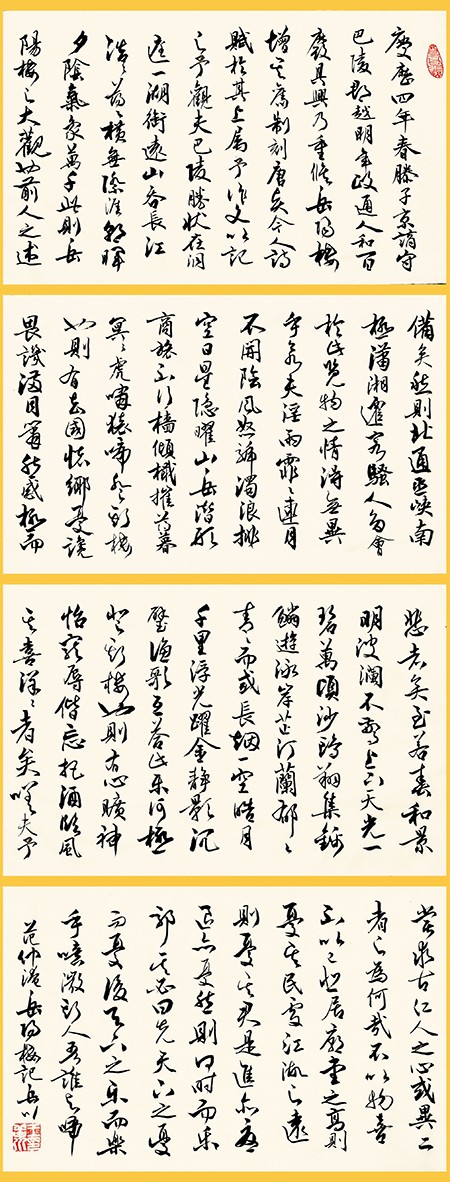 慶歷四年春滕子京謫守
巴陵郡越明年政通人和百
廢具興乃重修岳陽樓
增其舊制刻唐賢今人詩
賦於其上屬予作文以記
之予觀夫巴陵勝狀在洞
庭一湖銜遠山吞長江
浩〻湯〻橫無際涯朝暉
夕陰氣象萬千此則岳
陽樓之大觀也前人之述
備矣然則北通巫峽南
極瀟湘遷客騷人多會
於此覽物之情得無異
乎若夫淫雨霏〻連月
不開陰風怒號濁浪排
空日星隱曜山岳潛形
商旅不行檣傾楫摧薄暮
冥〻虎嘯猿啼登斯樓
也則有去國懷鄉憂讒
畏譏滿目蕭然感極而
悲者矣至若春和景
明波瀾不驚上下天光一
碧萬頃沙鷗翔集錦
鱗遊泳岸芷汀蘭郁〻
青〻而或長烟一空皓月
千里浮光躍金靜影沉
璧漁歌互答此樂何極
登斯樓也則有心曠神
怡寵辱偕忘把酒臨風
其喜洋〻者矣嗟夫予
嘗求古仁人之心或異二
者之為何哉不以物喜
不以己悲居廟堂之高則
憂其民處江湖之遠
則憂其君是進亦憂
退亦憂然則何時而樂
耶其必曰先天下之憂
而憂後天下之樂而樂
乎噫微斯人吾誰與歸
范仲淹岳陽樓記